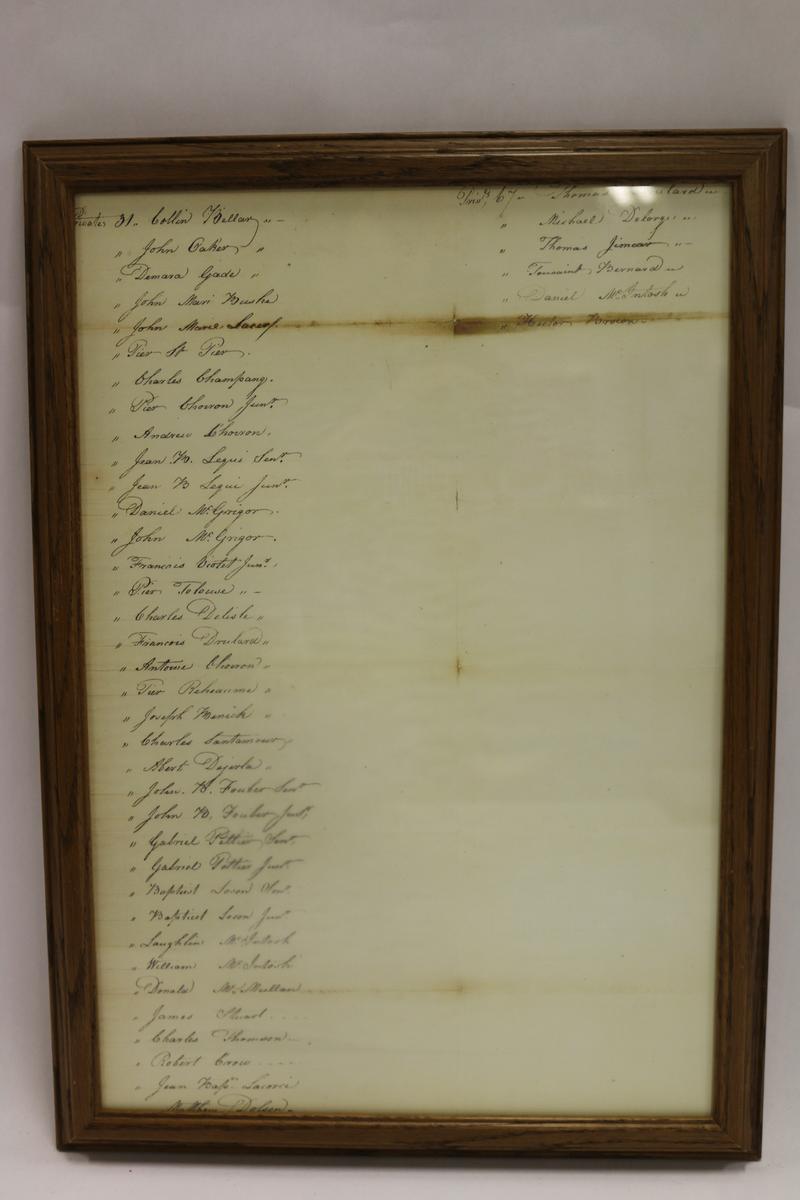 Privates 31.. Collin Kellar „ –
„ John Oaker „
„ Demara Gade „
„ John Mari Bushe
„ John Marie
„ Pier St Pier.
„ Charles Champang.
„ Pier Chovron Junr.
„ Andrew Chovron.
„ Jean B. Lequi Senr.
„ Jean B Lequi Junr.
„ Daniel McGrigor.
„ John McGrigor.
„ Francois Violet Junr.
„ Pier Tolouse „ –
„ Charles Delisle „
„ Francois Drulard „
„ Antoine Chovron „
„ Pier Reheaume „
„ Joseph „
„ Charles Santamour „
„ Abert „
„ John. B. Fouber Senr
„ John B. Fouber Junr.
„ Gabriel Pettier Senr.
„ Gabriel Pettier Junr.
„ Baptist Senr.
„ Baptist Junr
„ Laughlin McIntosh
„ William McIntosh
„ Donald McMullan
„ James Stuart
„ Charles Thomson
„ Robert Crow
„ Jean Bapt.
Matthew Dolsen
Privs, 67„ Thomas „
„ Michael Delorge „
„ Thomas „ –
„ Toussaint Bernard „
„ Daniel McIntosh „
„ Hector Brown